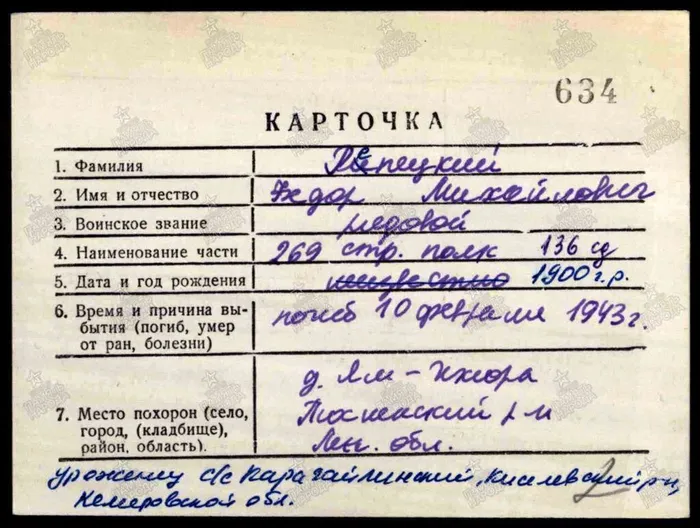 634
КАРТОЧКА
1. Фамилия Репецкий
2. Имя и отчество Федор Михайлович
3. Воинское звание рядовой
4. Наименование части 269 стр. полк 136 сд
5. Дата и год рождения неизвестно 1900 г.р.
6. Время и причина вы-
бытия (погиб, умер погиб 10 февраля 1943 г.
от ран, болезни)
д. Ям-Ижора
7. Место похорон (село, Тосненский р-н
город, (кладбище), Лен. обл.
район, область).
уроженец с/с Карагайлинский, Киселевский р-н,
Кемеровской обл.